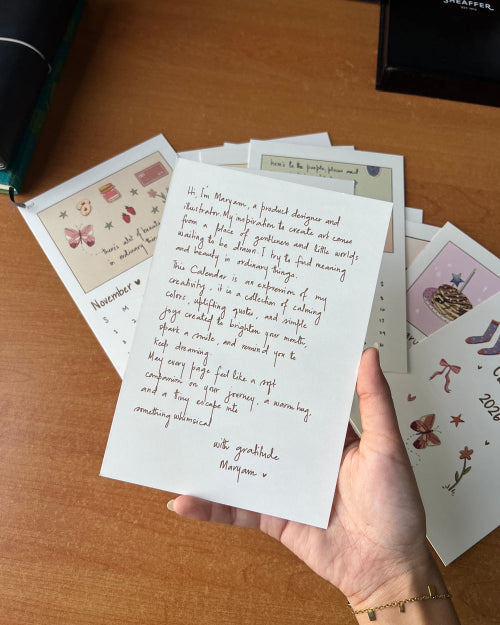 SHEAFFER
here's to the people, places and
there's a lot of beauty
in ordinary things
November ♥
S M
Hi, I'm Maryam, a product designer and
illustrator. My inspiration to create art comes
from a place of gentleness and little worlds
waiting to be drawn. I try to find meaning
and beauty in ordinary things.
This Calendar is an expression of my
creativity, it is a collection of calming
colors, uplifting quotes, and simple
joys created to brighten your months,
spark a smile, and remind you to
keep dreaming.
May every page feel like a soft
companion on your journey, a warm hug,
and a tiny escape into
something whimsical
with gratitude
Maryam ♥
2026